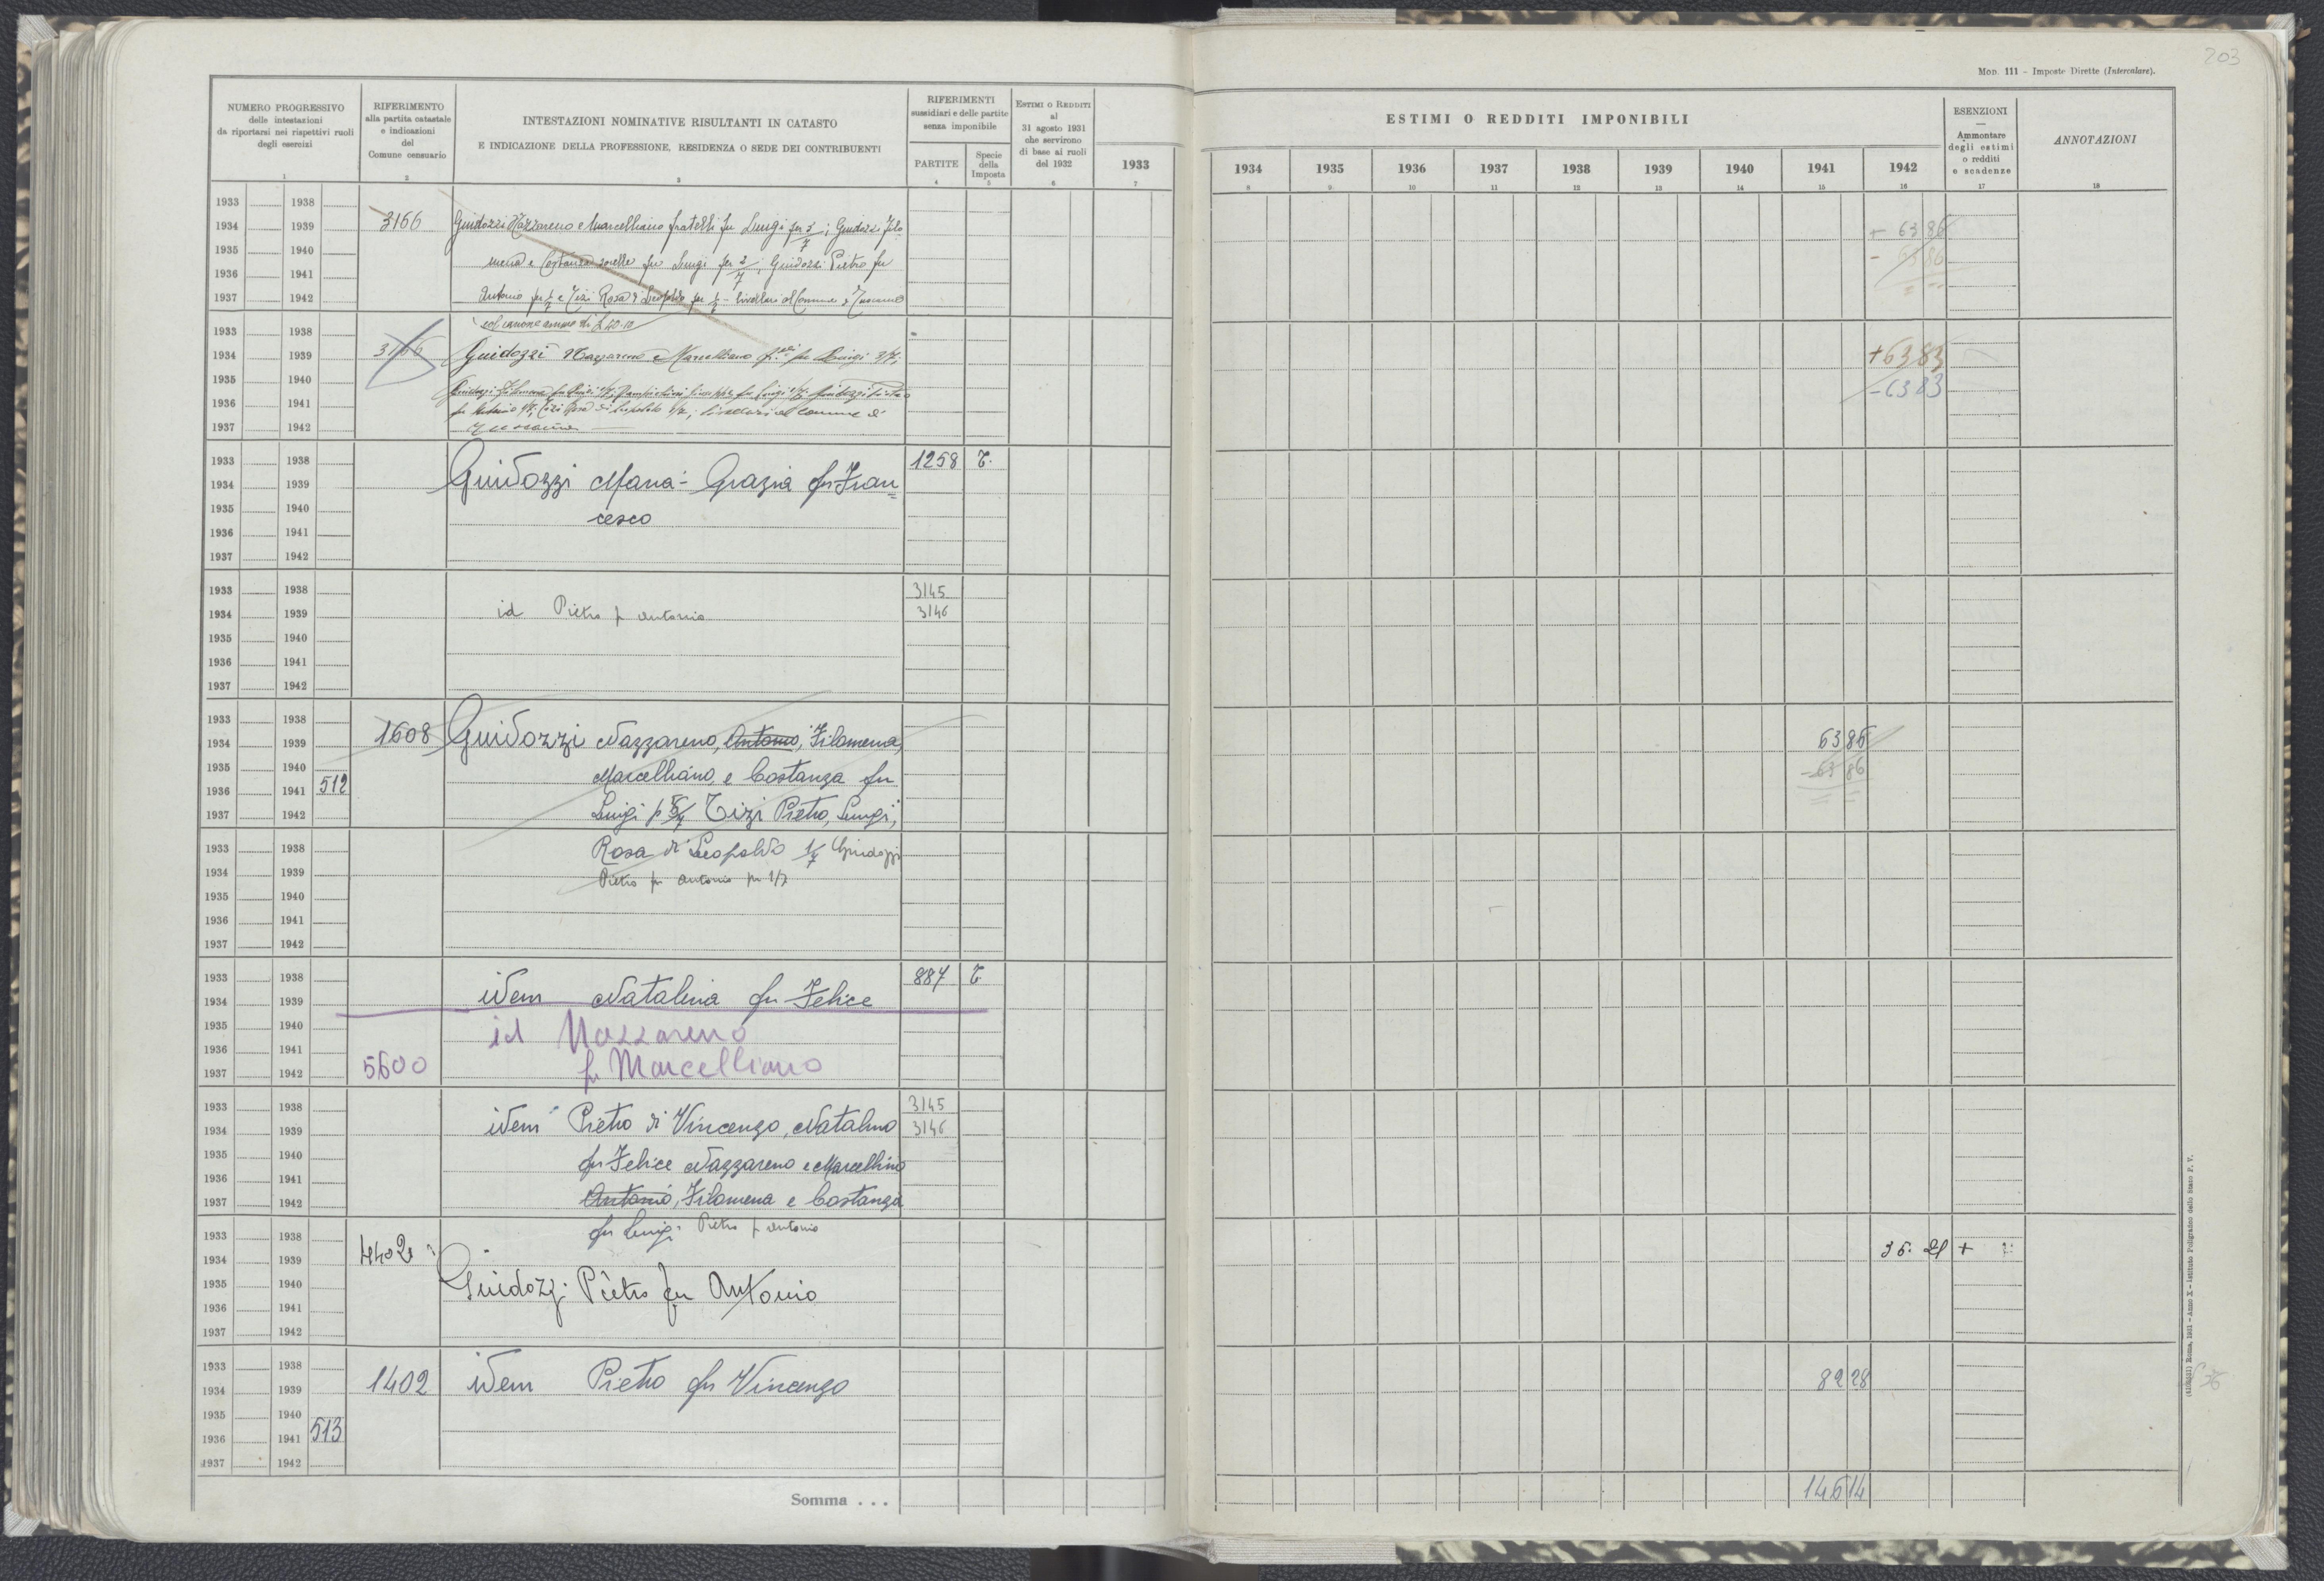 203
Mod. 111 – Imposte Dirette (Intercalare).
NUMERO PROGRESSIVO
delle intestazioni
da riportarsi nei rispettivi ruoli
degli esercizi
1
RIFERIMENTO
alla partita catastale
e indicazioni
del
Comune censuario
2
INTESTAZIONI NOMINATIVE RISULTANTI IN CATASTO
E INDICAZIONE DELLA PROFESSIONE, RESIDENZA O SEDE DEI CONTRIBUENTI
3
RIFERIMENTI
sussidiari e delle partite
senza imponibile
PARTITE
4
Specie
della
Imposta
5
ESTIMI O REDDITI
al
31 agosto 1931
che servirono
di base ai ruoli
del 1932
6
1933
7
ESTIMI O REDDITI IMPONIBILI
1934 1935 1936 1937 1938 1939 1940 1941 1942
8 9 10 11 12 13 14 15 16
ESENZIONI
—
Ammontare
degli estimi
o redditi
e scadenze
17
ANNOTAZIONI
18
1933 1938
1934 1939 3166 Guidozzi Nazzareno e Marcelliano fratelli fu Luigi per 3/7; Guidozzi Filo + 63 86
1935 1940 mena e Costanza sorelle fu Luigi per 2/7; Guidozzi Pietro fu - 63 86
1936 1941
1937 1942 Antonio per 1/7 e Tizi Rosa di Leopoldo per 1/7 – livellari al Comune di
col canone annuo di £ 40.10
1933 1938
1934 1939 3166 Guidozzi Nazzareno e Marcelliano f.lli fu Luigi 3/7; +63 83
1935 1940 Guidozzi Filomena fu Luigi 1/7; Giuseppe fu Luigi 1/7 Guidozzi Pietro -63 83
1936 1941 fu Antonio 1/7; Tizi Rosa di Leopoldo 1/7; livellari al Comune di
1937 1942
1933 1938 1258 T.
1934 1939 Guidozzi Maria-Grazia fu Fran=
1935 1940 cesco
1936 1941
1937 1942
1933 1938 3145
1934 1939 id Pietro fu Antonio 3146
1935 1940
1936 1941
1937 1942
1933 1938
1934 1939 1608 Guidozzi Nazzareno, Antonio, Filomena, 63 86
1935 1940 Marcelliano, e Costanza fu -63 86
1936 1941 512
1937 1942 Luigi p 5/7 Tizi Pietro, Luigi,
1933 1938 Rosa di Leopoldo 1/7 Guidozzi
1934 1939 Pietro fu Antonio per 1/7
1935 1940
1936 1941
1937 1942
1933 1938 887 T
1934 1939 idem Natalina fu Felice
1935 1940 id Nazzareno
1936 1941
1937 1942 5600 fu Marcelliano
1933 1938 3145
1934 1939 idem Pietro di Vincenzo, Natalino 3146
1935 1940 fu Felice Nazzareno e Marcellino
1936 1941
1937 1942 Antonio, Filomena e Costanza
fu Luigi Pietro fu Antonio
1933 1938
1934 1939 4402 36. 21 +
1935 1940 Guidozzi Pietro fu Antonio
1936 1941
1937 1942
1933 1938
1934 1939 1402 idem Pietro fu Vincenzo 82 28
1935 1940
1936 1941 513
1937 1942
Somma . . . 146 14
Roma, 1931 – Anno X – Istituto Poligrafico dello Stato P. V.